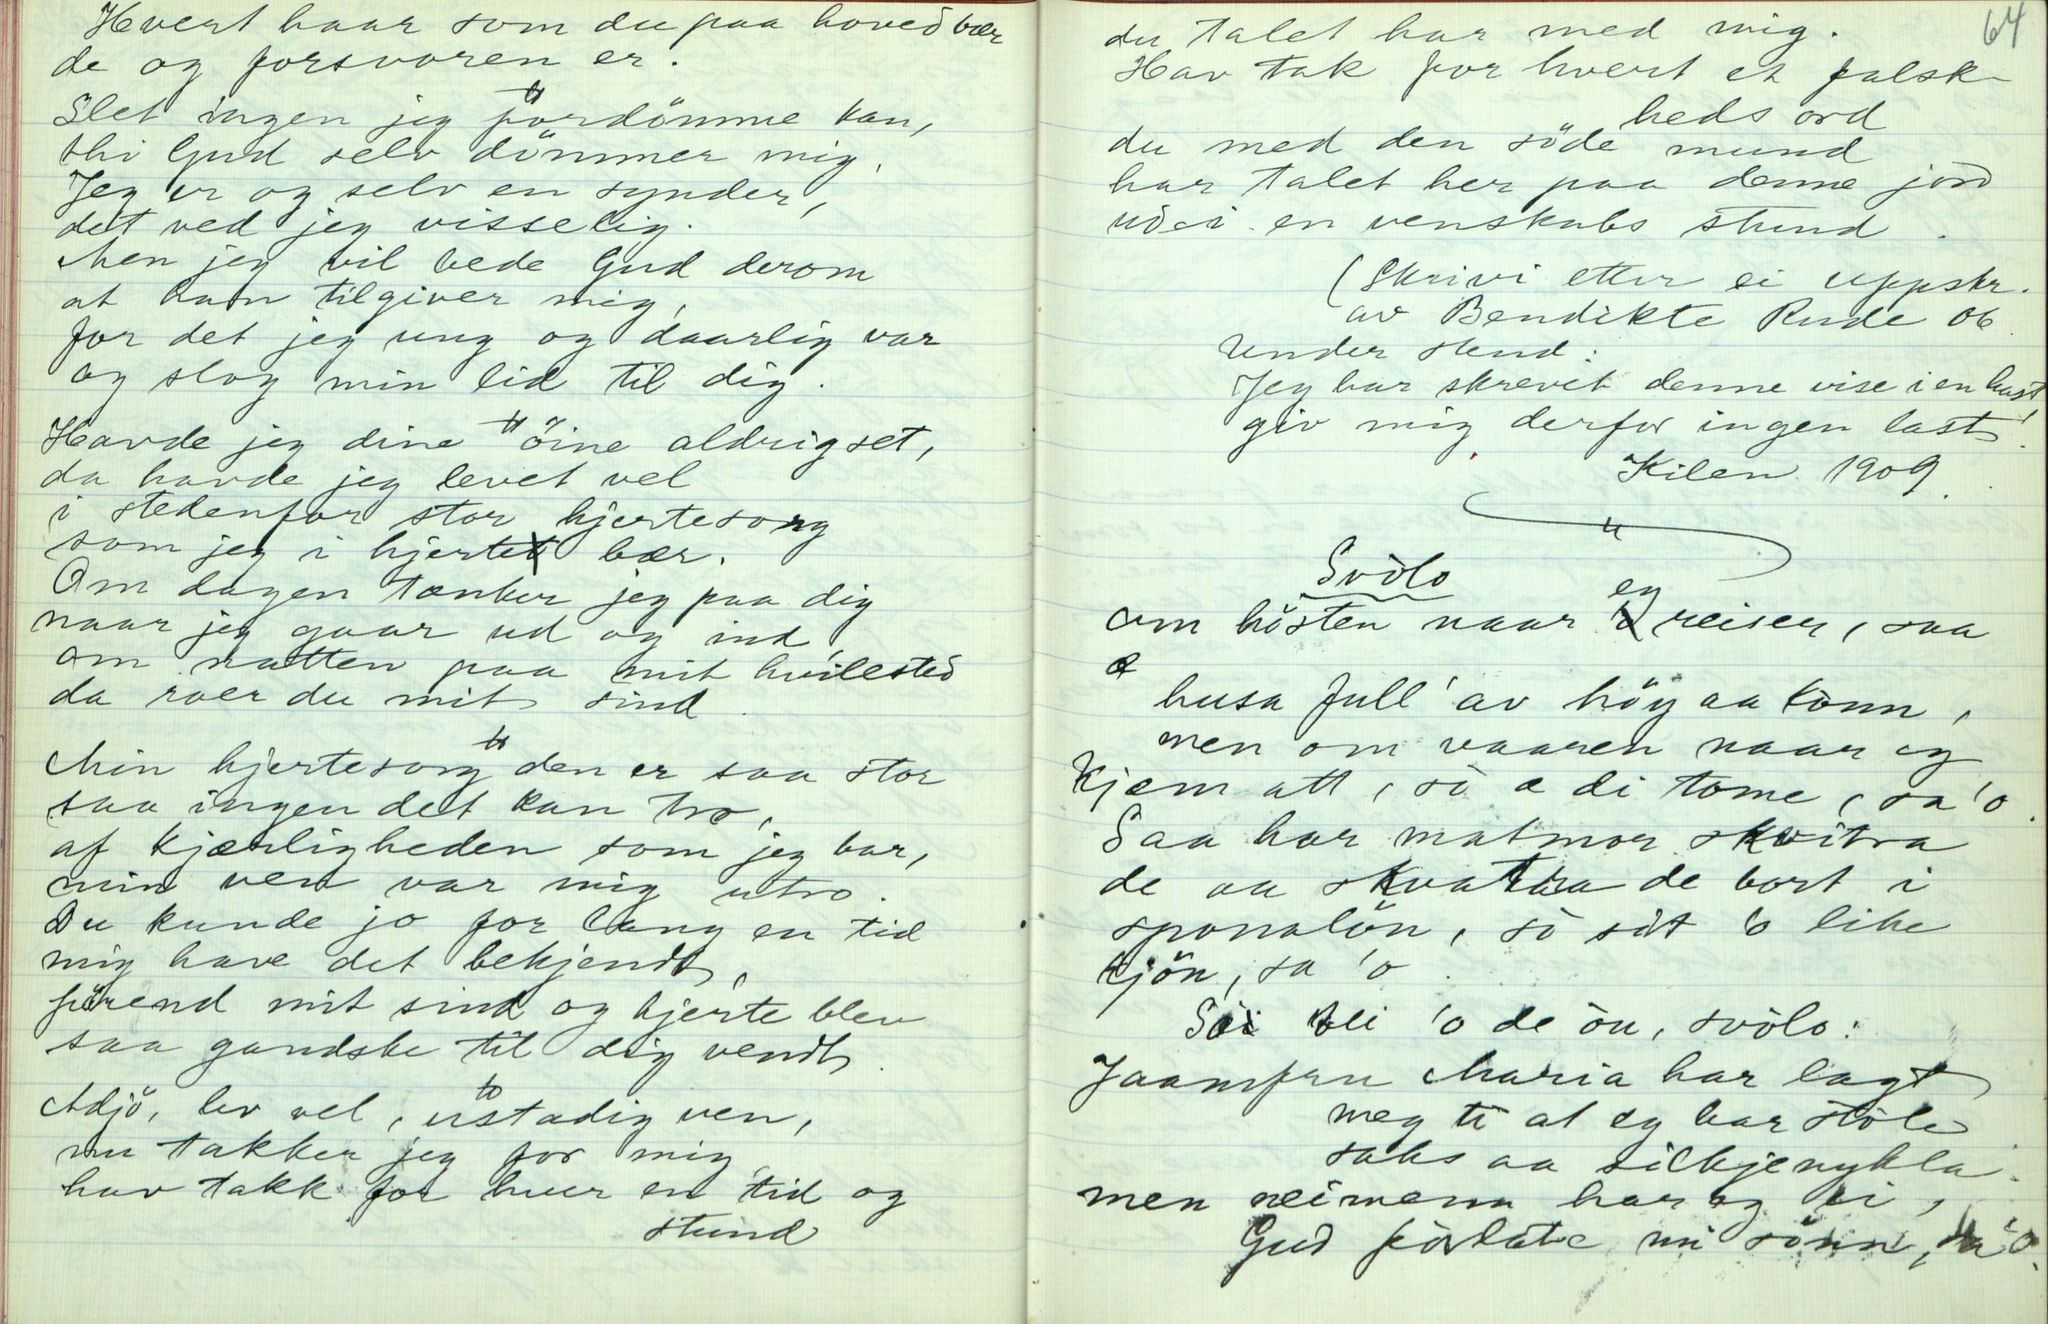 Hvert haar som du paa hoved bær
de og forsvoren er.
Slet ingen jeg fordömme kan,
thi Gud selv dömmer mig.
Jeg er og selv en synder,
det ved jeg visselig.
Men jeg vil bede Gud derom
at han tilgiver mig,
for det jeg ung og daarlig var
og slog min lid til dig.
Havde jeg dine öine aldrig set,
da havde jeg levet vel
i stedenfor stor hjertesorg
som jeg i hjertet bær.
Om dagen tænker jeg paa dig
naar jeg gaar ud og ind,
om natten paa mit hvilested
da roer du mit sind.
Min hjertesorg den er saa stor
saa ingen det kan tro,
af kjærligheden som jeg bar,
min ven var mig utro.
Du kunde jo for lang en tid
mig have det bekjendt,
förend mit sind og hjerte blev
saa gandske til dig vendt.
Adjö, lev vel, ustadig ven,
nu takker jeg for mig,
hav takk for hver en tid og
stund
64
du talet har med mig.
Hav tak for hvert et falsk-
heds ord
du med den söde mund
har talet her paa denne jord
udi en venskabs stund.
(Skrivi etter ei uppskr.
av Bendikte Rude ob.
Under stend:
Jeg har skrevet denne vise i en hast,
giv mig derfor ingen last.
Kilen 1909.
Svòlo
om hösten naar eg reiser, saa
æ
husa full' av höy aa konn,
men om vaaren naar eg
kjem att, so æ di tome, sa 'o.
Saa har matmor skvitra
de aa skvatra de bort i
sponalön, so sit 'o like
kjön, sa 'o.
Soi blei 'o de òu, svòlo:
Jaamfru Maria har lagt
meg ti at eg har stòle
saks aa silkjenykla
men neimenn har eg ei,
Gud förlate mi sönn, sa 'o.